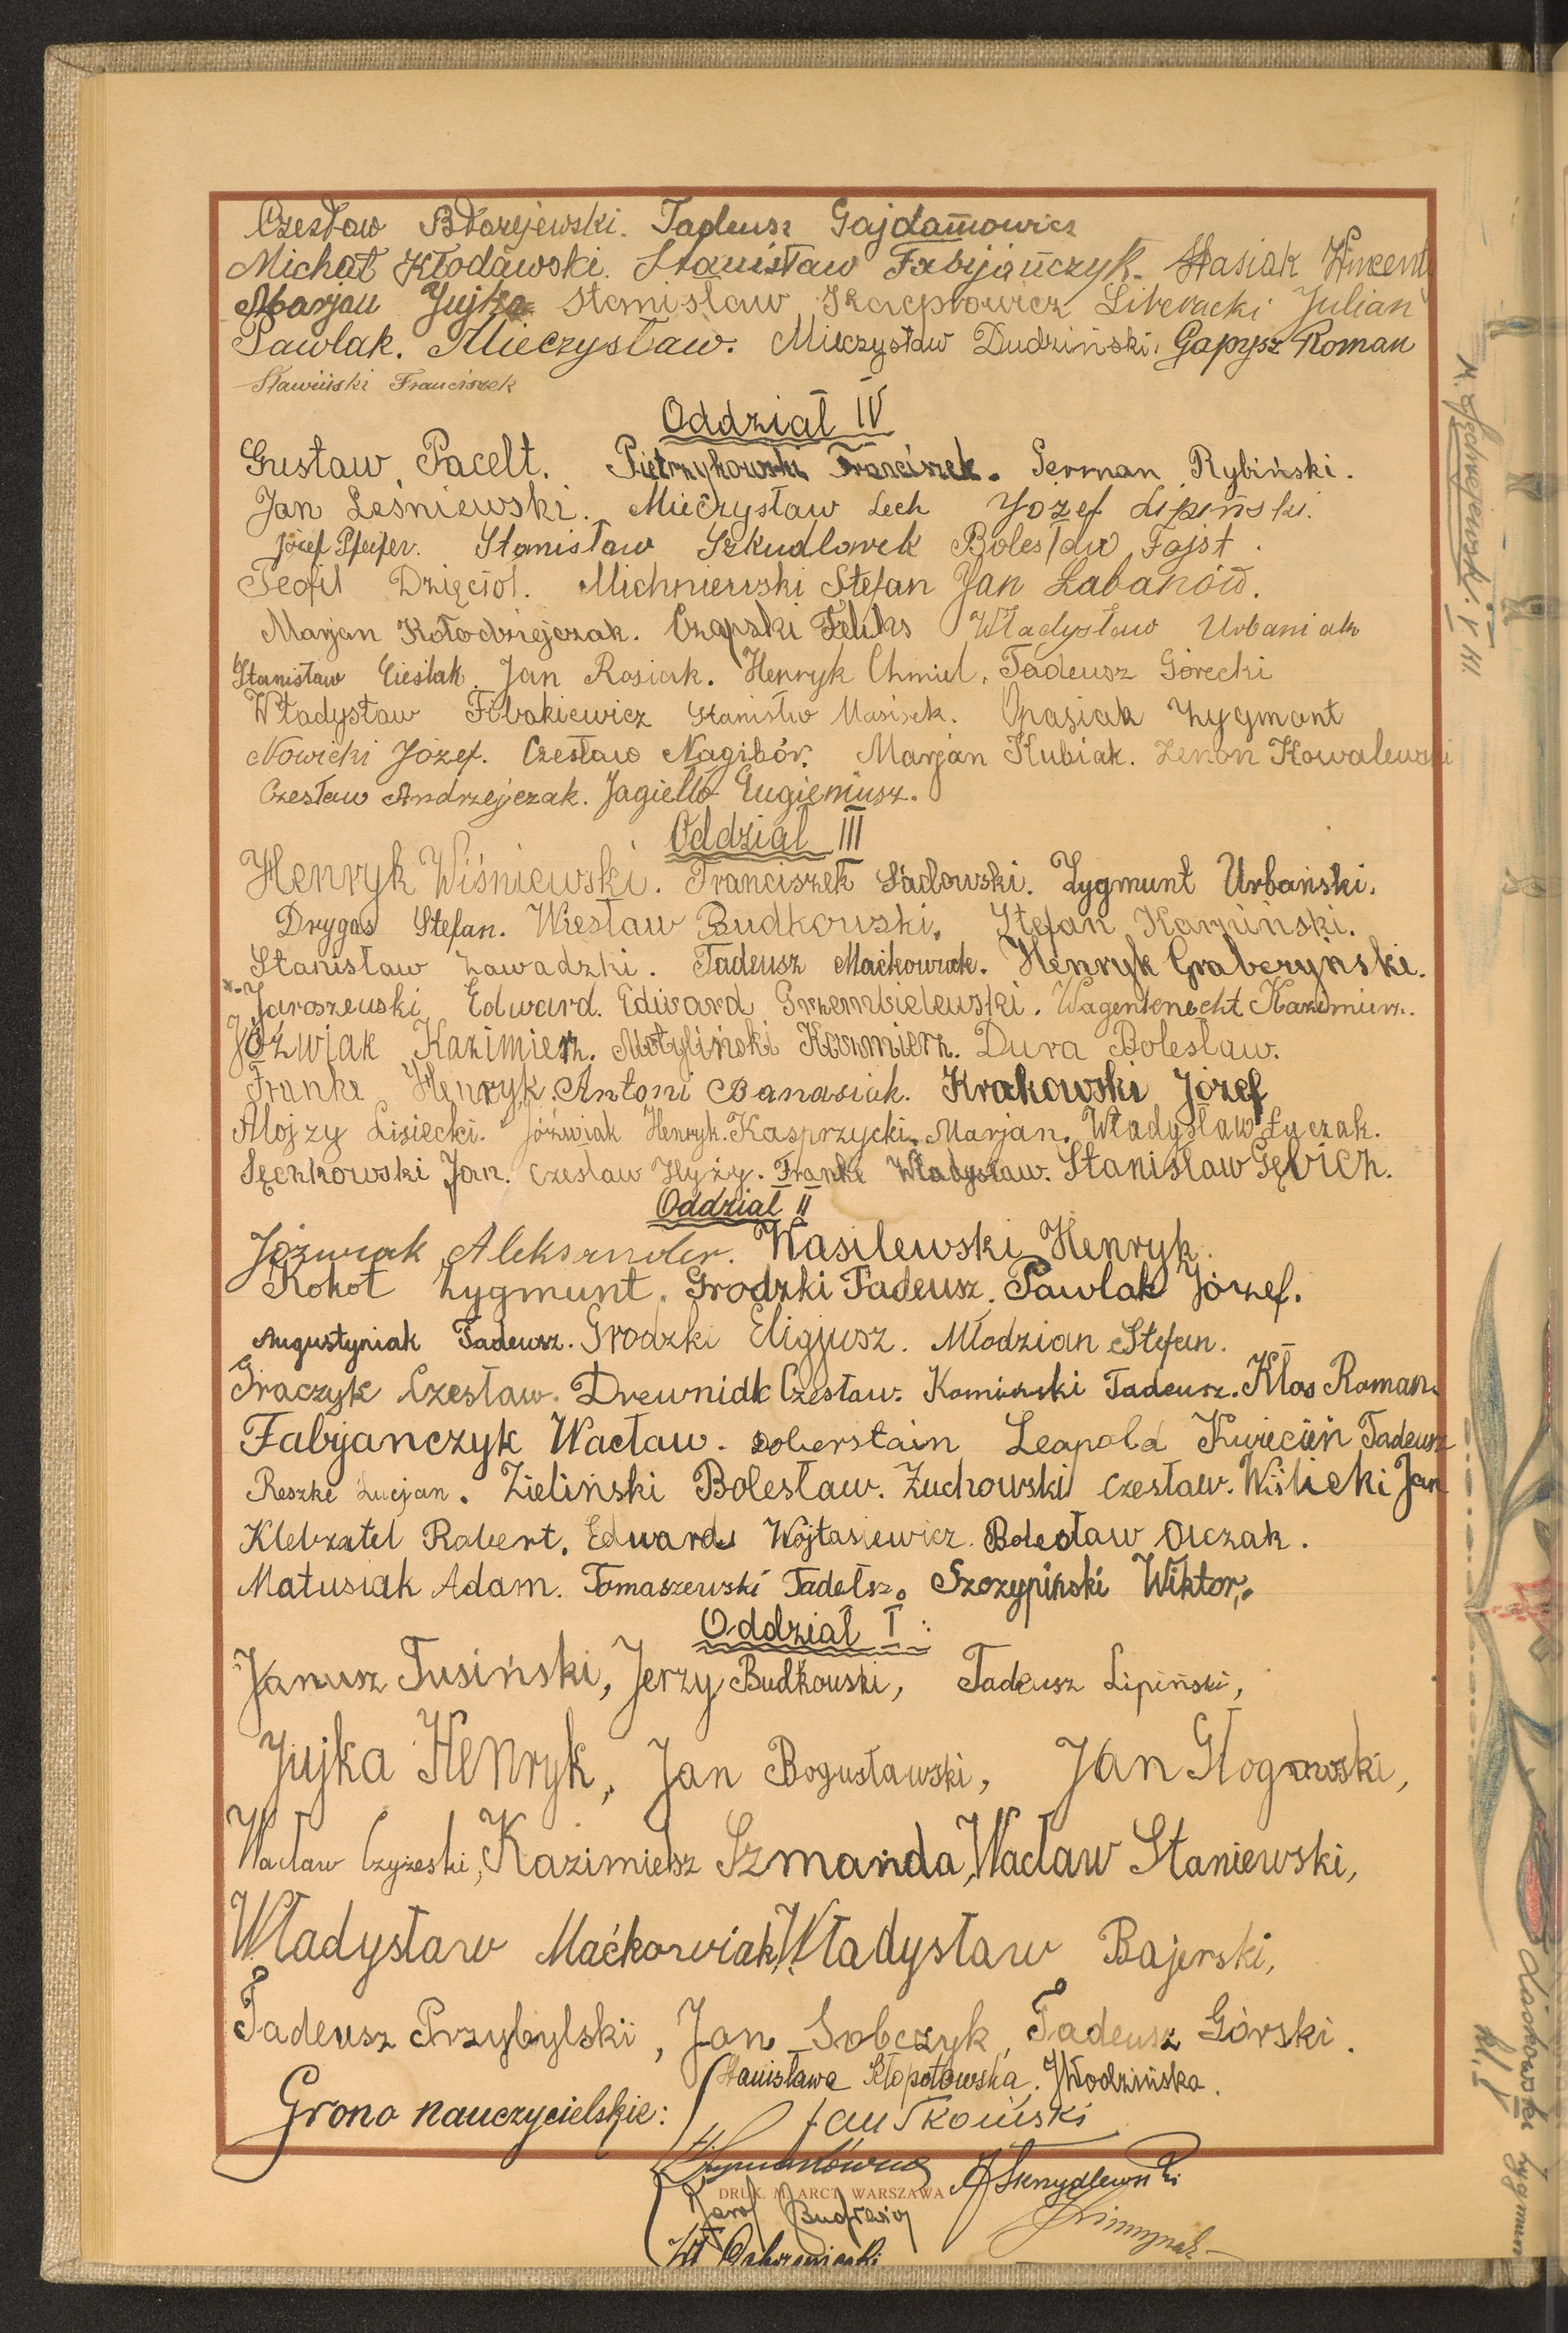 Czesław Błażejewski. Tadeusz Gajdamowicz
Michał Kłodawski. Stanisław Fabijańczyk. Stasiak Wincenty
Marjan Jujka Stanisław Kacprowicz Liberacki Julian
Pawlak. Mieczysław. Mieczysław Dudziński. Gapysz Roman
Sławiński Franciszek
Oddział IV
Gustaw Pacelt. Pietrzykowski Franciszek. German Rybiński.
Jan Leśniewski. Mieczysław Lech Józef Lipiński.
Józef Pfeifer. Stanisław Szkudlarek Bolesław Fajst.
Teofil Dzięcioł. Michniewski Stefan Jan Łabanów.
Marjan Kołodziejczak. Czapski Feliks Władysław Urbaniak
Stanisław Cieślak. Jan Rosiak. Henryk Chmiel, Tadeusz Górecki
Władysław Fibakiewicz Stanisłw Masisek. Opasiak Zygmont
Nowicki Józef. Czesław Nagibór. Marjan Kubiak. Zenon Kowalewski
Czesław Andrzejczak. Jagiełło Eugieniusz.
Oddział III
Henryk Wiśniewski. Franciszek Sadowski. Zygmunt Urbański.
Drygas Stefan. Wiesław Budkowski. Stefan Kamiński.
Stanisław Zawadzki. Tadeusz Maćkowiak. Henryk Grabczyński.
Jaroszewski Edward. Edward Grzembielewski. Wagenknecht Kazimierz.
Jóźwiak Kazimierz. Motyliński Kazimierz. Dura Bolesław.
Franke Henryk. Antoni Banasiak. Krakowski Józef
Alojzy Lisiecki. Jóźwiak Henryk. Kasprzycki Marjan. Władysław Łyczak.
Sęczkowski Jan. Czesław Hyży. Franke Władysław. Stanisław Gębicz.
Oddział II
Jóźwiak Aleksander. Wasilewski Henryk.
Kokot Zygmunt. Grodzki Tadeusz. Pawlak Józef.
Augustyniak Tadeusz. Grodzki Eligjusz. Młodzian Stefan.
Graczyk Czesław. Drewniak Czesław. Kamiński Tadeusz. Kłos Roman.
Fabjanczyk Wacław. Doberstain Leopold Kwiecień Tadeusz
Reszke Lucjan. Zieliński Bolesław. Żuchowski Czesław. Wiślicki Jan
Klebzatel Robert. Edward Wojtasiewicz. Bolesław Olczak.
Matusiak Adam. Tomaszewski Tadeusz. Szczypiński Wiktor.
Oddział I:
Janusz Tusiński, Jerzy Budkowski, Tadeusz Lipiński,
Jujka Henryk, Jan Bogusławski, Jan Głogowski,
Wacław Czyżeski, Kazimiesz Szmańda, Wacław Staniewski,
Władysław Maćkowiak, Władysław Bajerski,
Tadeusz Przybylski, Jan Sobczyk, Tadeusz Górski.
Grono nauczycielskie:
Stanisława Kłopotowska. JWłodzińska.
Jan Skowiński
DRUK. M. ARCT, WARSZAWA
A Skrzydlewski
Karol
M. Andrzejewski. V. III.
Laskowski Zygmunt
kl. V